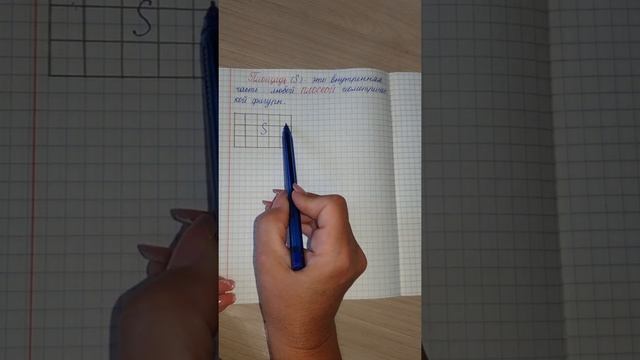 Площадь (S) - это внутренняя
часть любой ПЛОСКОЙ геометричес
кой фигуры.
S